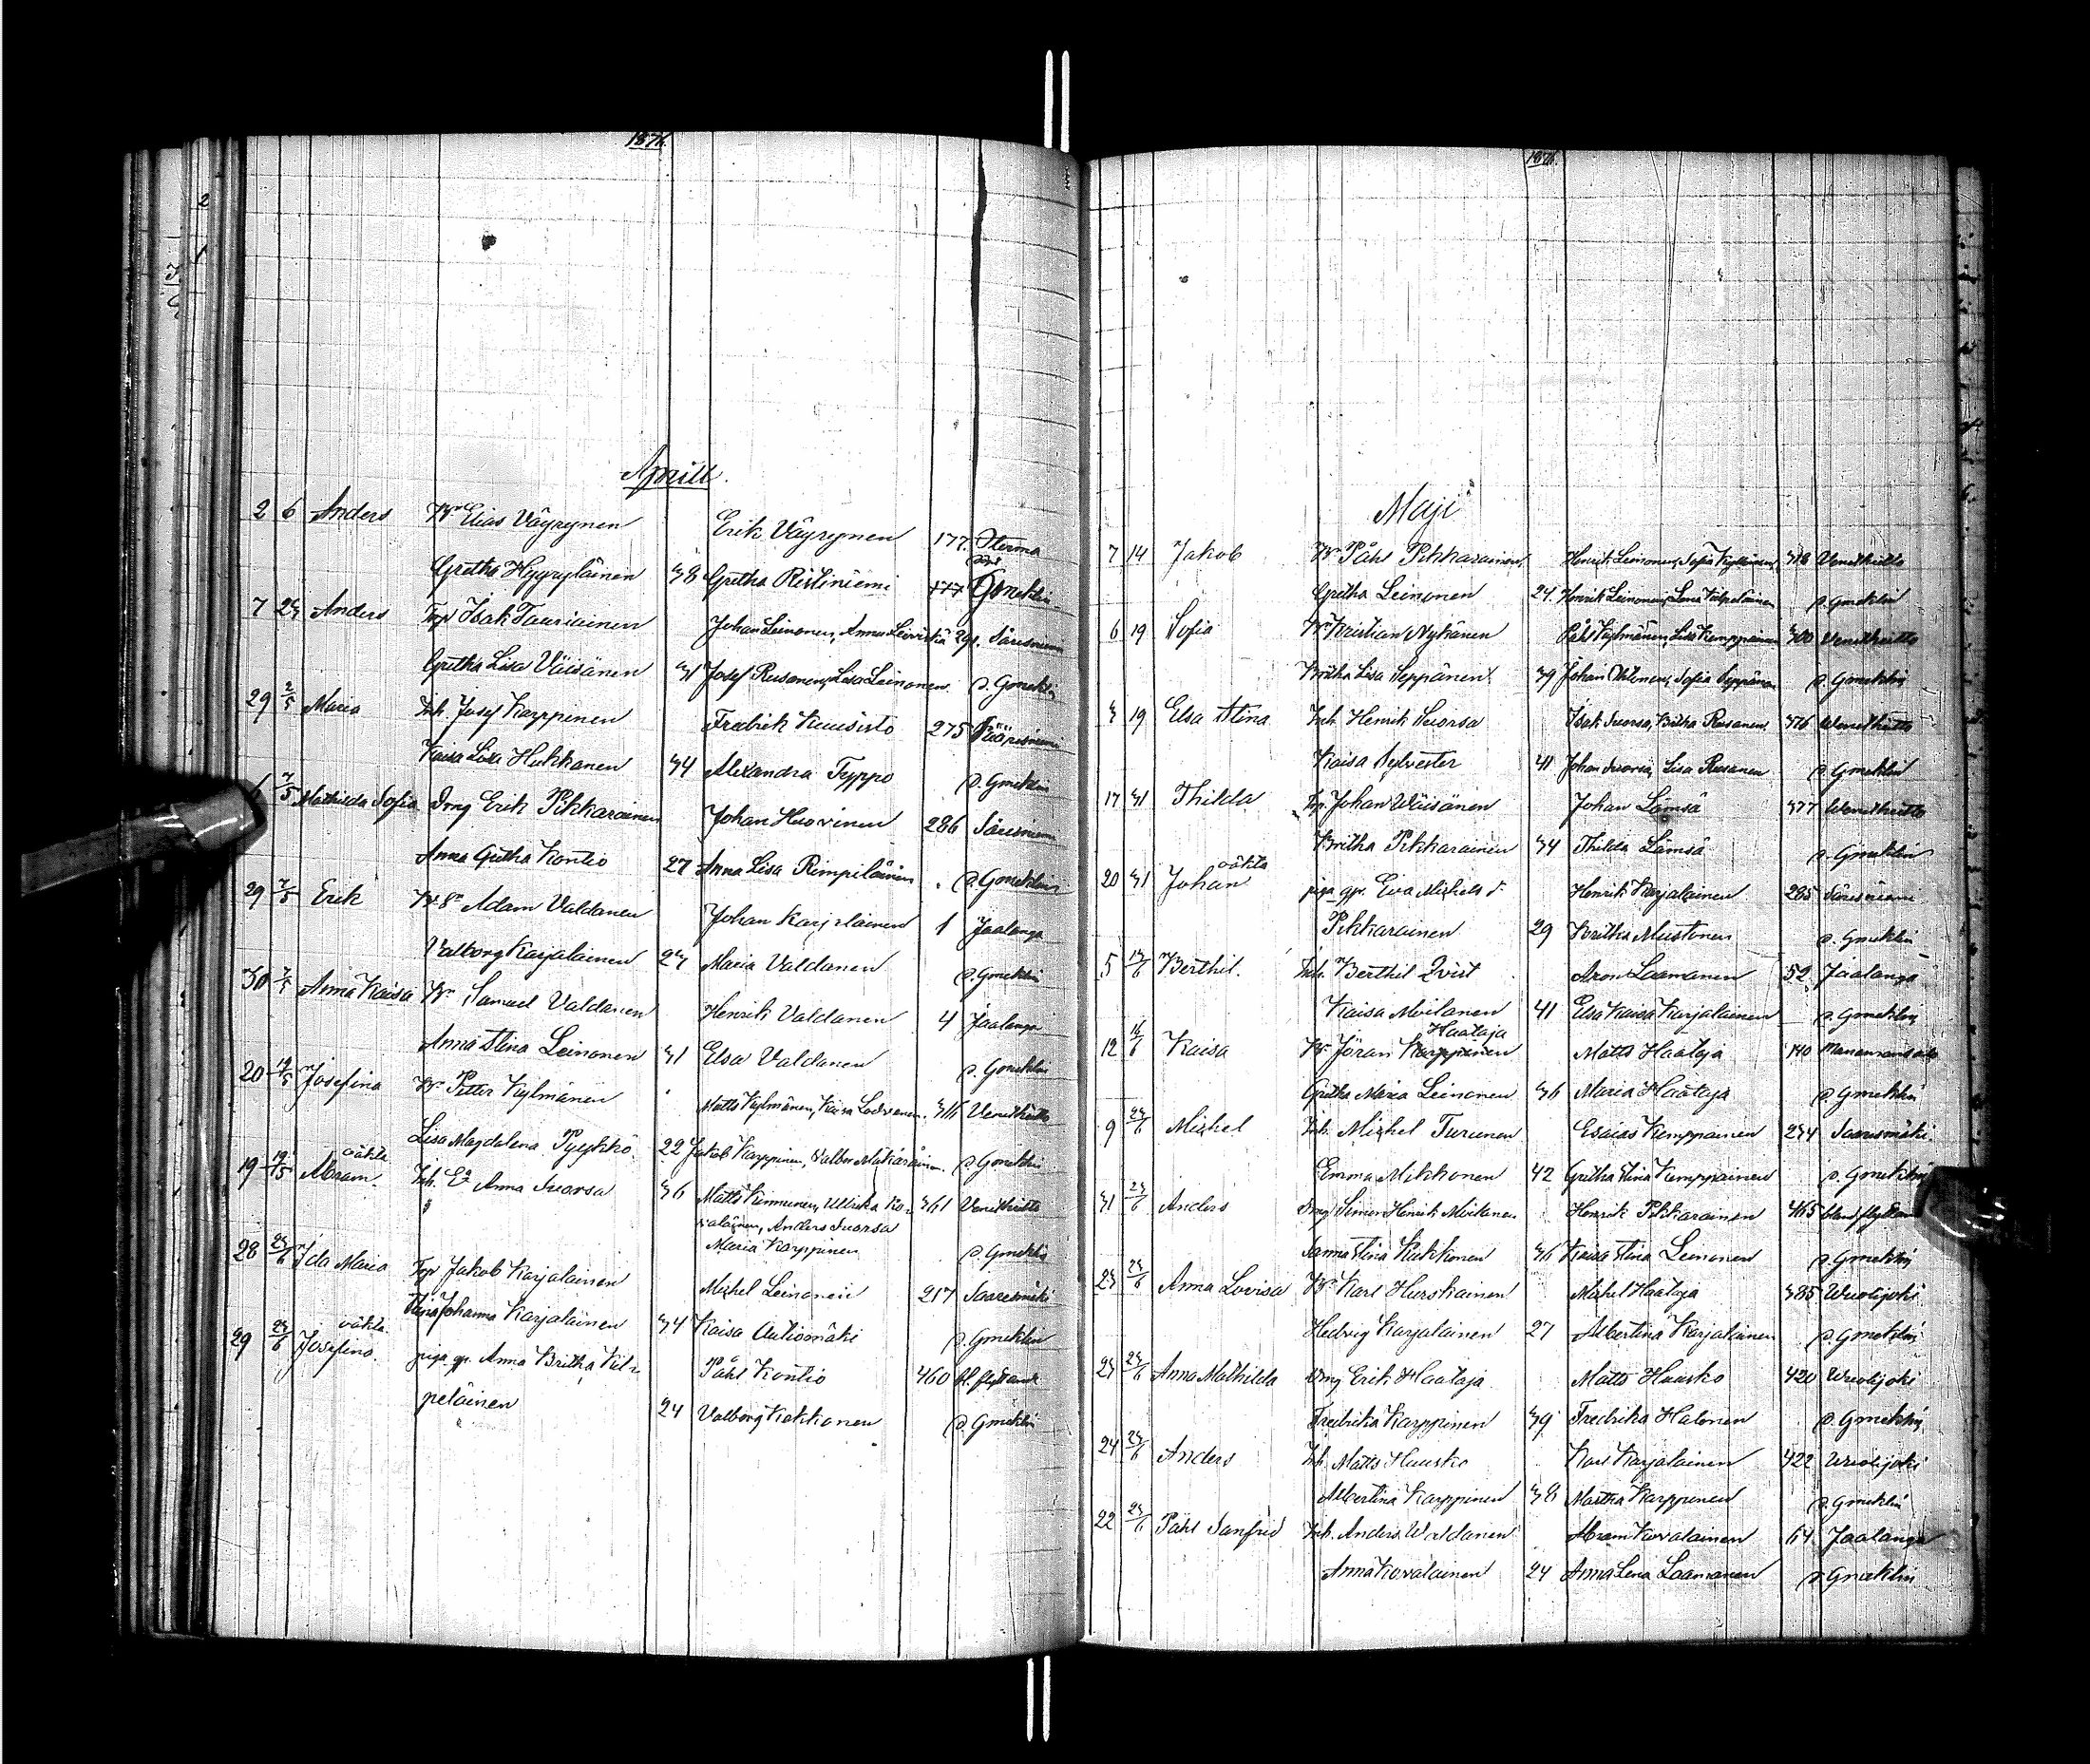 1876.
Aprill.
2 6 Anders Bn Elias Väyrynen Erik Väyrynen 177.
Gretha Hyyryläinen 38 Gretha Ristiniemi 177 Gmeklin
7 23 Anders Torp Isak Tauriainen Johan Leinonen, Anna Leiviskä Säresniemi
Gretha Lisa Väisänen 31 Josef Rusanen, Lisa Leinonen p. Gmeklin
29 2/5 Maria Inh. Josef Karppinen Fredrik Kuusisto 275 Säresniemi
Kaisa Lisa Hukkanen 34 Alexandra Typpö p. Gmeklin
7/5 Mathilda Sofia Drng Erik Pikkarainen Johan Huovinen 286 Säresniemi
Anna Gretha Kontio 27 Anna Lisa Rimpiläinen p. Gmeklin
29 7/5 Erik Adam Valdanen Johan Karjalainen 1 Jaalanga
Valborg Karjalainen 23 Maria Valdanen p. Gmeklin
30 7/5 Anna Kaisa Bn Samuel Valdanen Henrik Valdanen 4 Jaalanga
Anna Stina Leinonen 31 Elsa Valdanen p. Gmeklin
20 19/5 Josefina Bn Petter Kylmänen Matts Kylmänen, Kaisa 316 Venetheitto
Lisa Magdalena Pyykkö 22 Jakob Karppinen, Valbor p. Gmeklin
oäkta
19 19/5 Abram. Inh. Ea Anna Suorsa 36 Matts Kinnunen, Ullrika Ko- 361 Venetheitto
valainen, Anders Suorsa
Maria Karppinen p. Gmeklin
28 23/6 Ida Maria Torp Jakob Karjalainen Michel Leinonen 217 Saaresmäki
Stina Johanna Karjalainen 34 Kaisa Autiomäki p. Gmeklin
oäkta
29 23/6 Josefina. piga gp. Anna Britha Kil- Påhl Kontio 460 bl. flyttande
peläinen 24 Valborg Kokkonen p. Gmeklin
1876.
Maji
7 14 Jakob Bn Påhl Pikkarainen Henrik Leinonen, Sofia Kylmänen 318 Venetheitto
Gretha Leinonen 24. Henrik Leinonen, Lena Kilpeläinen p. Gmeklin
6 19 Sofia Bn Kristian Nykänen Påhl Kylmänen, Lisa Kemppainen 300 Venetheitto
Britha Lisa Seppänen 39 Johan Väänänen, Sofia Seppänen p. Gmeklin
3 19 Elsa Stina Inh. Henrik Suorsa Isak Suorsa, Britha Rusanen 376 Wenetheitto
Kaisa Sylvester 41 Johan Suorsa, Lisa Rusanen p. Gmeklin
17 31 Thilda Torp. Johan Wäisänen Johan Lämsä 377 Wenetheitto
Britha Pikkarainen 34 Thilda Lämsä p. Gmeklin
oäkta
20 31 Johan piga gp. Eva Michels d. Henrik Karjalainen 285 Säresniemi
Pikkarainen 29 Britha Mustonen p. Gmeklin
5 Berthil. Inh. Berthil Qvist Aron Laamanen 52. Jaalanga
Kaisa Moilanen 41 Elsa Kaisa Karjalainen p. Gmeklin
Haataja
12 16/6 Kaisa Bn Jöran Karppinen Matts Haataja 140 Manamansalo
Gretha Maria Leinonen 36 Maria Haataja p. Gmeklin
9 23/6 Michel Inh. Michel Turunen Esaias Kemppainen 234 Saaresmäki
Emma Mikkonen 42 Gretha Stina Kemppainen p. Gmeklin
31 23/6 Anders Drng Simon Henrik Moilanen Henrik Pikkarainen 465 bland flyttande
Sanna Stina Kukkonen 36 Kaisa Stina Leinonen p. Gmeklin
23 23/6 Anna Lovisa Bn Karl Hurskainen Michel Haataja 385 Wuolijoki
Hedvig Karjalainen 27 Albertina Karjalainen p. Gmeklin
23 23/6 Anna Mathilda Drng Erik Haataja Matts Huusko 420 Wuolijoki
Fredrika Karppinen 39 Fredrika Halonen p. Gmeklin
24 23/6 Anders Inh. Matts Huusko Karl Karjalainen 422 Wuolijoki
Albertina Karppinen 38 Martha Karppinen p. Gmeklin
22 23/6 Påhl Sanfrid Inh. Anders Waldanen Abram Kovalainen 64 Jaalanga
Anna Kovalainen 24 Anna Lena Laamanen p. Gmeklin